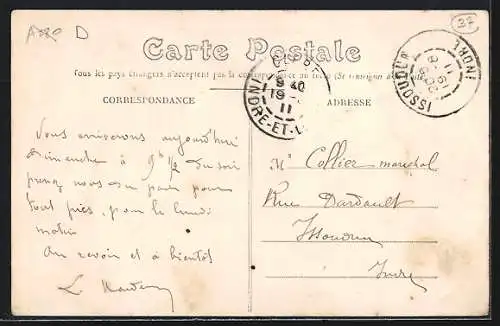 D
37
Carte Postale
Tous les pays étrangers n'acceptent pas la correspondance au recto (Se renseigner à la Poste)
CORRESPONDANCE
ADRESSE
INDRE-ET-L
19 11
ISSOUDUN
INDRE
Vous arriverons aujourd'hui
dimanche à 9h 1/2 du soir
prenez nous du pain pour
tout près, pour le lundi
matin
Au revoir et à bientôt
L.
Mr Collier maréchal
Rue Dardault
Issoudun
Indre